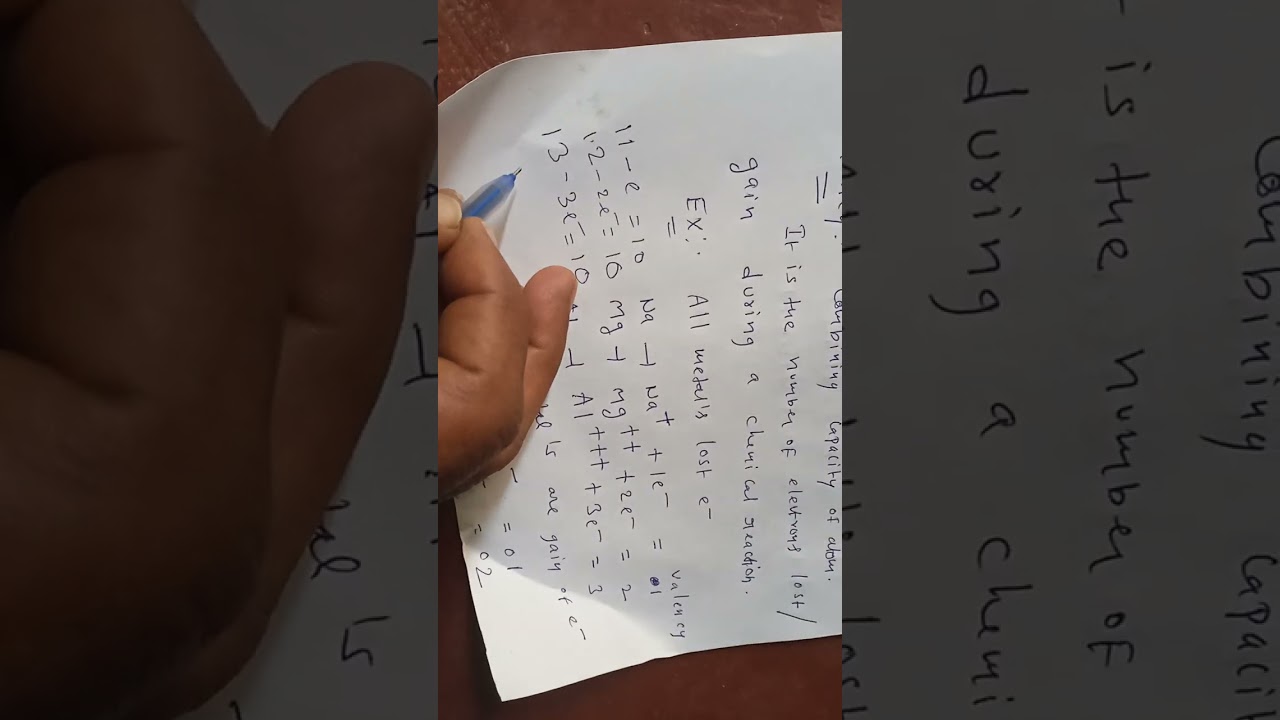 combining capacity of atom.
It is the number of electrons lost/
gain during a chemical reaction.
EX: All metals lost e⁻
valency
11 - e = 10 Na → Na⁺ + 1e⁻ = 01
12 - 2e⁻ = 10 mg → mg⁺⁺ + 2e⁻ = 2
13 - 3e⁻ = 10 Al → Al⁺⁺⁺ + 3e⁻ = 3
are gain of e⁻
⁻ = 01
⁻ = 02